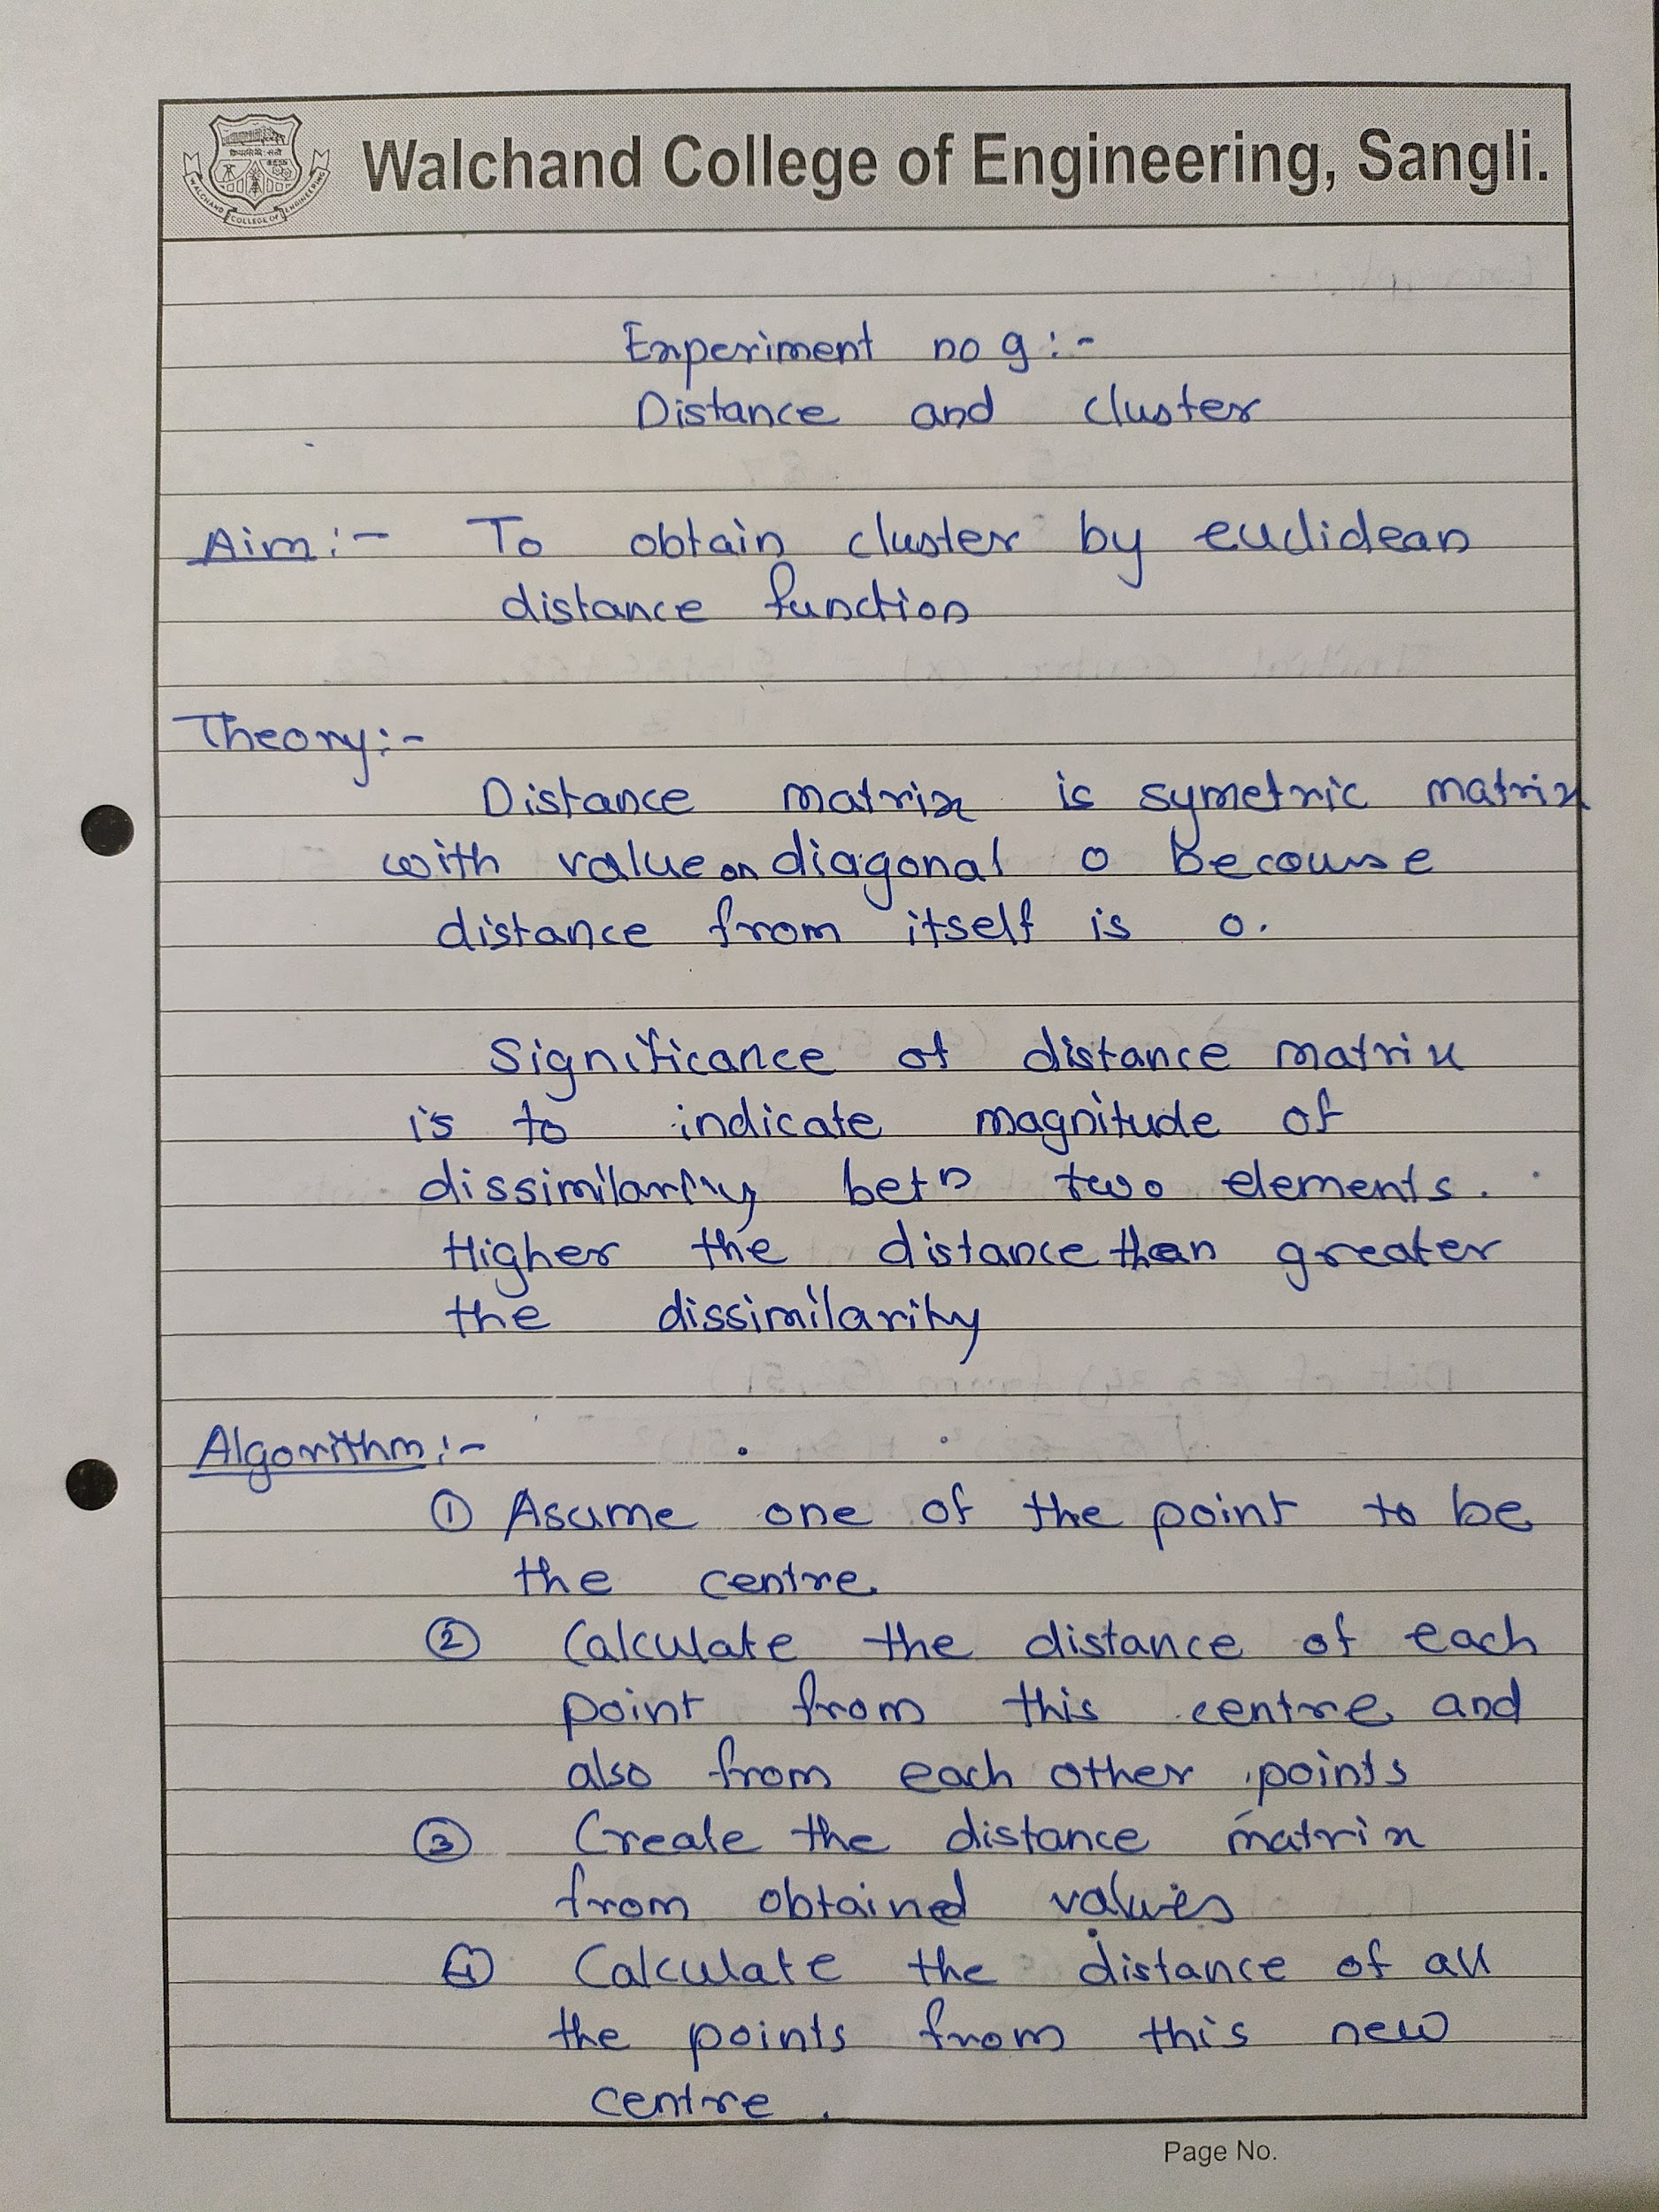 WALCHAND COLLEGE OF ENGINEERING
Walchand College of Engineering, Sangli.
Experiment no 9:-
Distance and cluster
Aim:- To obtain cluster by euclidean
distance function
Theory:-
Distance matrix is symetric matrix
with value on diagonal 0 becouse
distance from itself is 0.
Significance of distance matrix
is to indicate magnitude of
dissimilarity betn two elements.
Higher the distance than greater
the dissimilarity
Algorithm:-
① Asume one of the point to be
the centre
② Calculate the distance of each
point from this centre and
also from each other points
③ Create the distance matrix
from obtained values
④ Calculate the distance of all
the points from this new
centre.
Page No.